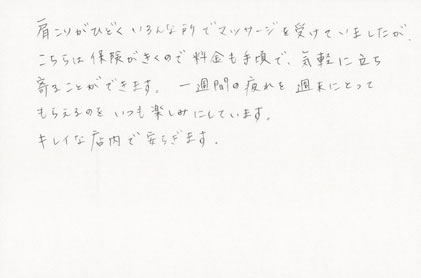 肩こりがひどくいろんな所でマッサージを受けていましたが、
こちらは保険がきくので料金も手頃で、気軽に立ち
寄ることができます。 一週間の疲れを週末にとって
もらえるのをいつも楽しみにしています。
キレイな店内で安らぎます。